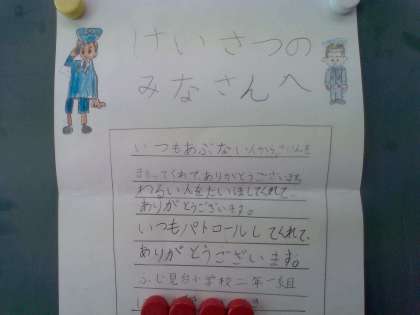 けいさつの
みなさんへ
いつもあぶない人から
まもってくれて、ありがとうございます。
わるい人をたいほしてくれて、
ありがとうございます。
いつもパトロールしてくれて、
ありがとうございます。
ふじ見台小学校二年一組